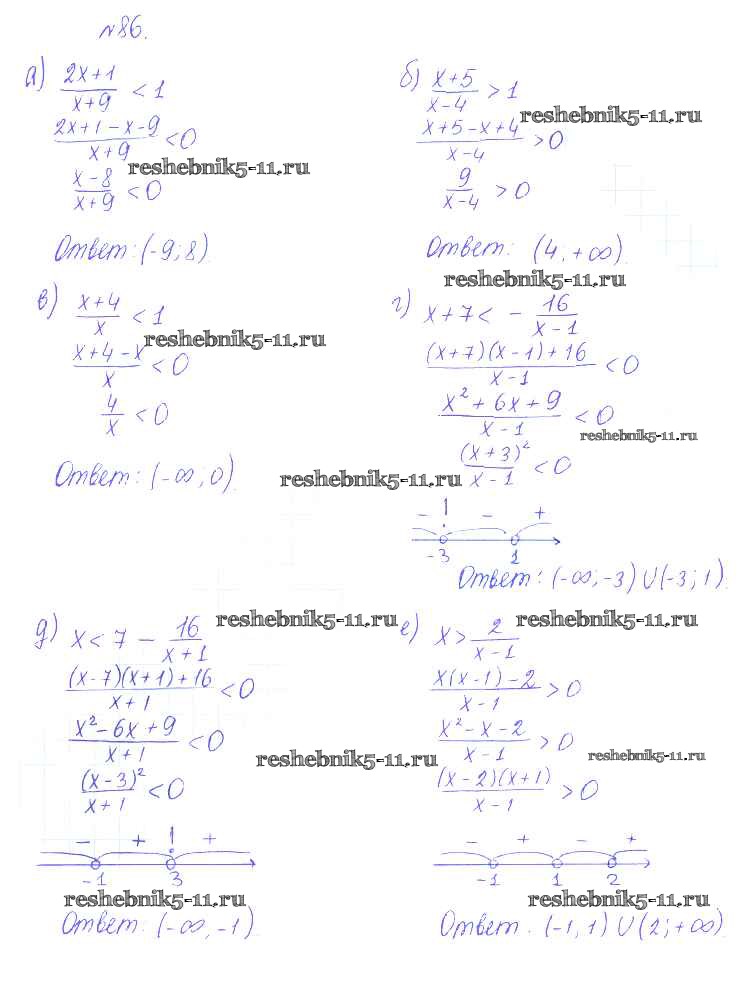 №86.
а) (2x+1)/(x+9) < 1
(2x+1-x-9)/(x+9) < 0
reshebnik5-11.ru
(x-8)/(x+9) < 0
Ответ: (-9; 8)
б) (x+5)/(x-4) > 1
reshebnik5-11.ru
(x+5-x+4)/(x-4) > 0
9/(x-4) > 0
Ответ: (4; +∞)
reshebnik5-11.ru
в) (x+4)/x < 1
reshebnik5-11.ru
(x+4-x)/x < 0
4/x < 0
Ответ: (-∞; 0)
reshebnik5-11.ru
г) x+7 < - 16/(x-1)
((x+7)(x-1)+16)/(x-1) < 0
(x²+6x+9)/(x-1) < 0
reshebnik5-11.ru
(x+3)²/(x-1) < 0
- ! - +
-3 1
Ответ: (-∞; -3) U (-3; 1).
д) x < 7 - 16/(x+1)
reshebnik5-11.ru
((x-7)(x+1)+16)/(x+1) < 0
(x²-6x+9)/(x+1) < 0
reshebnik5-11.ru
(x-3)²/(x+1) < 0
- + ! +
-1 3
reshebnik5-11.ru
Ответ: (-∞, -1)
е) x > 2/(x-1)
reshebnik5-11.ru
(x(x-1)-2)/(x-1) > 0
(x²-x-2)/(x-1) > 0
reshebnik5-11.ru
((x-2)(x+1))/(x-1) > 0
- + - +
-1 1 2
reshebnik5-11.ru
Ответ. (-1, 1) U (2; +∞)